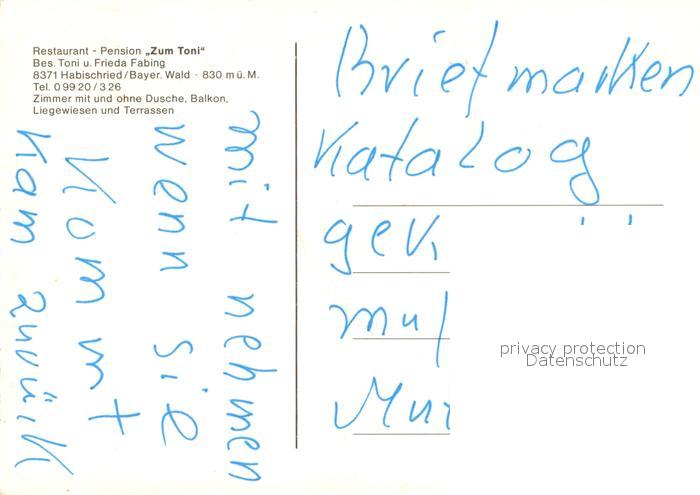 Restaurant - Pension „Zum Toni"
Bes. Toni u. Frieda Fabing
8371 Habischried/Bayer. Wald · 830 m ü. M.
Tel. 0 99 20 / 3 26
Zimmer mit und ohne Dusche, Balkon,
Liegewiesen und Terrassen
mit nehmen
wenn sie
kommt
kam zurück
Briefmarken
Katalog
privacy protection
Datenschutz